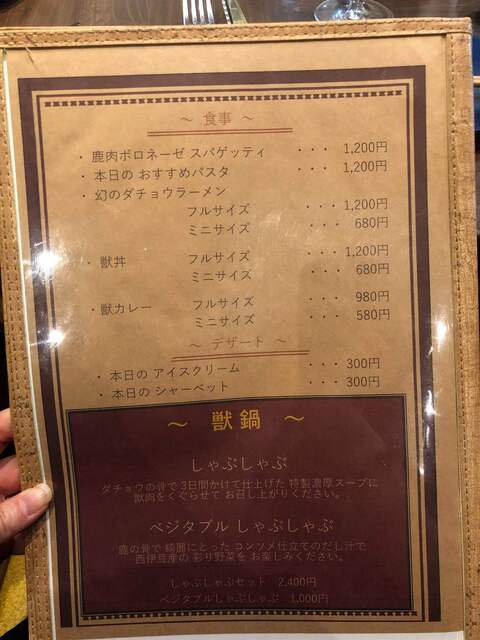 ～ 食事 ～
・鹿肉ボロネーゼ スパゲッティ ・・・ 1,200円
・本日の おすすめパスタ ・・・ 1,200円
・幻のダチョウラーメン
フルサイズ ・・・ 1,200円
ミニサイズ ・・・ 680円
・獣丼 フルサイズ ・・・ 1,200円
ミニサイズ ・・・ 680円
・獣カレー フルサイズ ・・・ 980円
ミニサイズ ・・・ 580円
～ デザート ～
・本日の アイスクリーム ・・・ 300円
・本日の シャーベット ・・・ 300円
～ 獣鍋 ～
しゃぶしゃぶ
ダチョウの骨で 3日間かけて仕上げた 特製濃厚スープに
獣肉をくぐらせて お召し上がりください。
ベジタブル しゃぶしゃぶ
鹿の骨で 綺麗にとった コンソメ仕立てのだし汁で
西伊豆産の 彩り野菜を お楽しみください。
しゃぶしゃぶセット 2,400円
ベジタブルしゃぶしゃぶ 1,000円